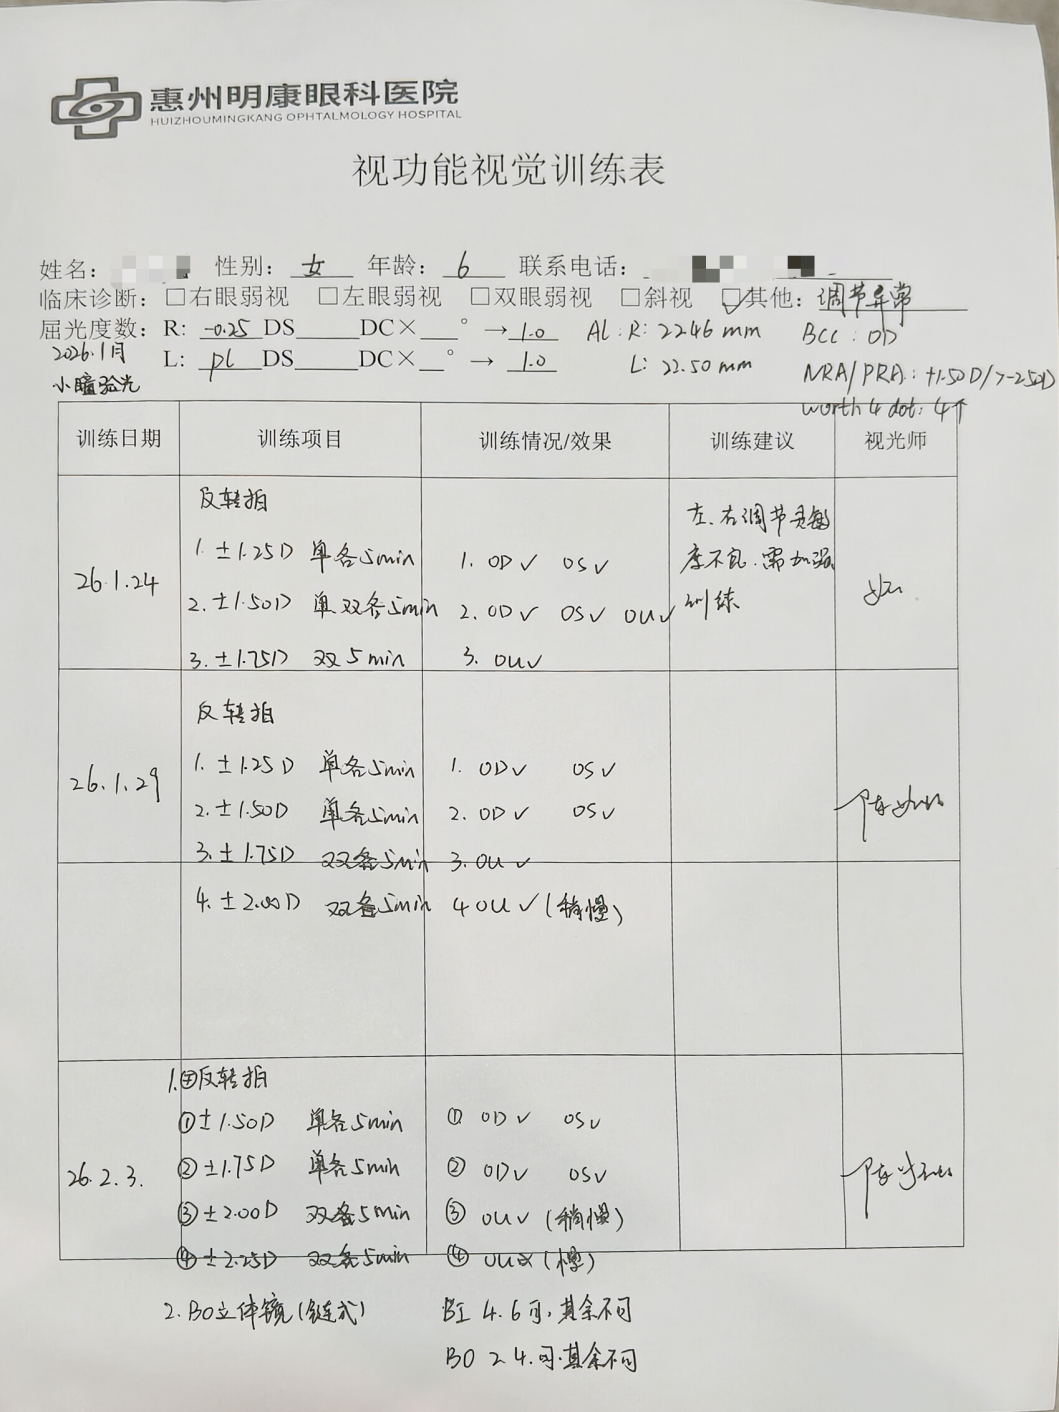 惠州明康眼科医院
HUIZHOUMINGKANG OPHTALMOLOGY HOSPITAL
视功能视觉训练表
姓名: 性别: 女 年龄: 6 联系电话:
临床诊断: □右眼弱视 □左眼弱视 □双眼弱视 □斜视 ☑其他: 调节异常
屈光度数: R: -0.25 DS DC× ° → 1.0 AL: R: 22.46 mm BCC: OD
2026.1月 L: pl DS DC× ° → 1.0 L: 22.50 mm NRA/PRA: +1.50D/>-2.50D
小瞳验光 worth 4 dot: 4个
训练日期 训练项目 训练情况/效果 训练建议 视光师
26.1.24
反转拍
1. ±1.25D 单各5min 1. OD√ OS√
2. ±1.50D 单双各5min 2. OD√ OS√ OU√
3. ±1.75D 双5min 3. OU√
左、右调节灵敏
度不良.需加强
训练
26.1.29
反转拍
1. ±1.25D 单各5min 1. OD√ OS√
2. ±1.50D 单各5min 2. OD√ OS√
3. ±1.75D 双 5min 3. OU√
4. ±2.00D 双 5min 4 OU√(稍慢)
26.2.3.
1. 反转拍
①±1.50D 单各5min ① OD√ OS√
②±1.75D 单各5min ② OD√ OS√
③±2.00D 双 5min ③ OU√(稍慢)
④±2.25D 双 5min ④ OU (慢)
2. BO立体镜(链式) BI 4.6可,其余不可
BO 2 4.可.其余不可